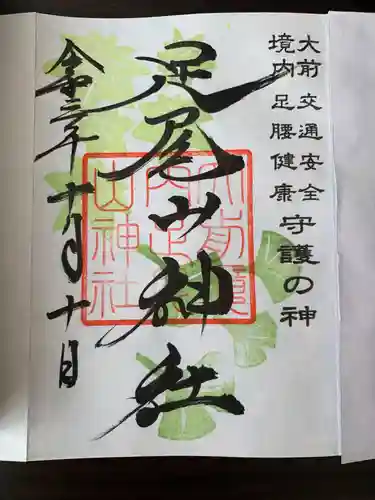 大前 交通安全
境内 足腰健康 守護の神
足尾山神社
令和三年十一月十日